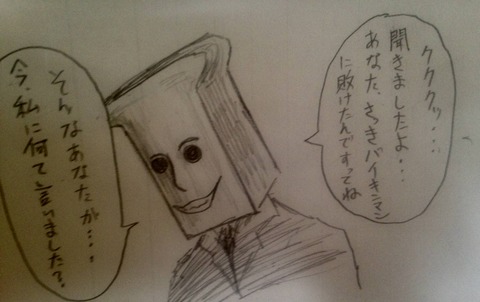 ククク…
聞きましたよ…
あなた、さっきバイキンマン
に敗けたんですってね
そんなあなたが…
今、私に何て言いました？